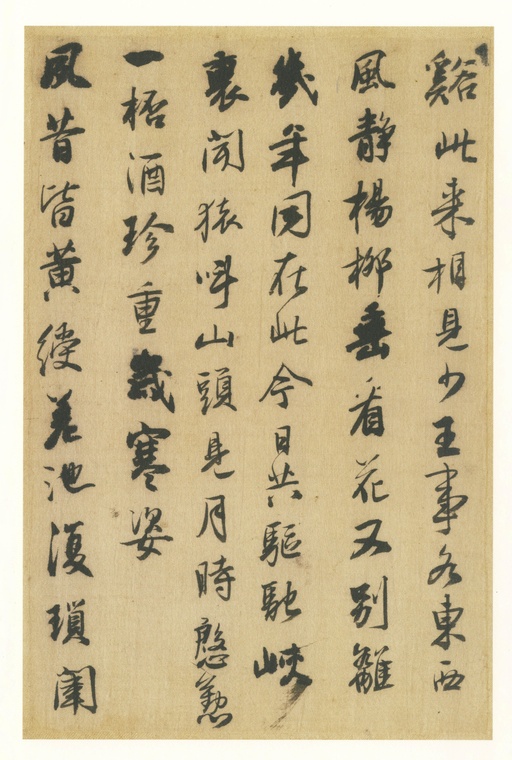 谿此来相見少王事各東西
風靜楊栁垂看花又別離
幾年同在此今日共驅馳峽
裏聞猿叫山頭見月時慇懃
一桮酒珍重歲寒姿
夙昔皆黄綬差池復瑣闈